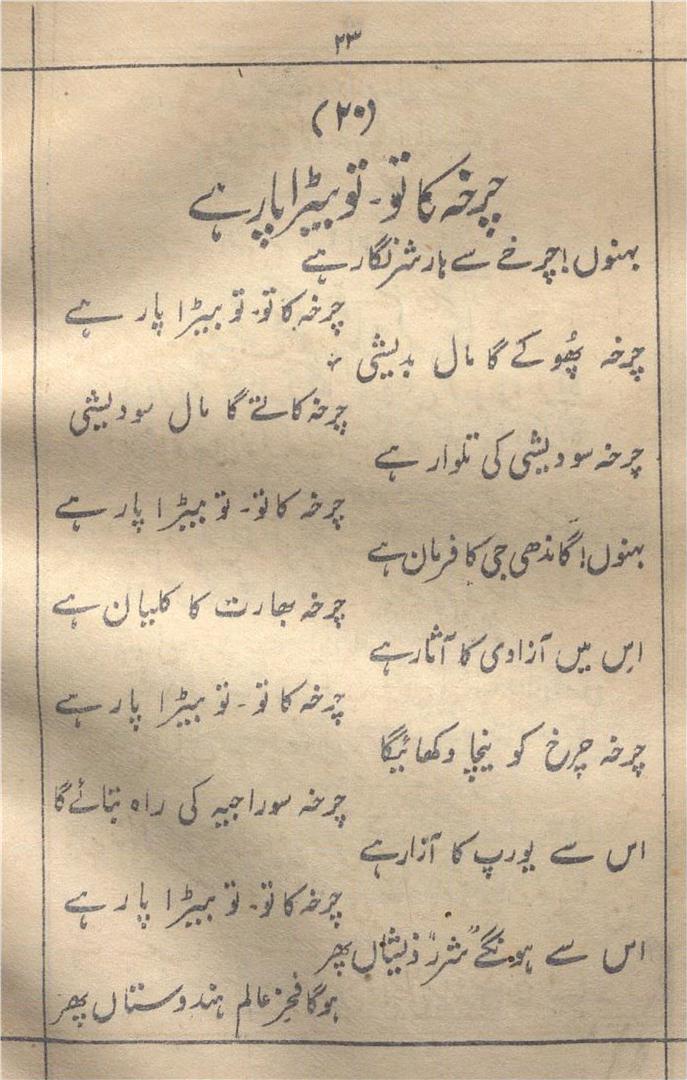 ۲۳
(۲۰)
چرخہ کاتو۔ تو بیڑا پار ہے
بہنوں! چرخے سے ہار شرنگار ہے
چرخہ کاتو۔ تو بیڑا پار ہے
چرخہ پھُوکے گا مال بدیشی
چرخہ کاتے گا مال سودیشی
چرخہ سودیشی کی تلوار ہے
چرخہ کاتو۔ تو بیڑا پار ہے
بہنوں! گاندھی جی کا فرمان ہے
چرخہ بھارت کا کلیان ہے
اِس میں آزادی کا آثار ہے
چرخہ کاتو۔ تو بیڑا پار ہے
چرخہ چرخ کو نیچا دکھائیگا
چرخہ سوراجیہ کی راہ بتائے گا
اس سے یورپ کا آزار ہے
چرخہ کاتو۔ تو بیڑا پار ہے
اس سے ہونگے "شرر" ذیشاں پھر
ہوگا فخرِ عالم ہندوستاں پھر